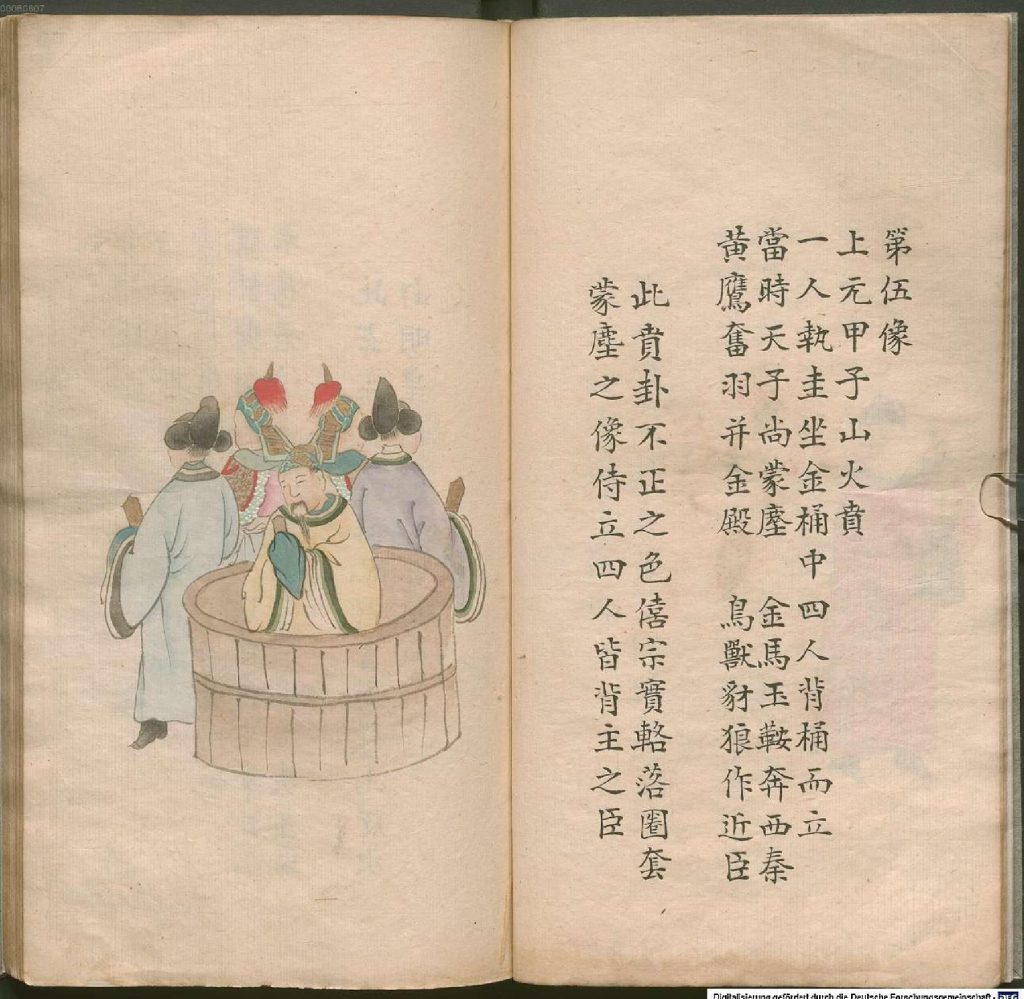 00060807
第伍像
上元甲子山火賁
一人執圭坐金桶中四人背桶而立
當時天子尚蒙塵 金馬玉鞍奔西秦
黄鷹奮羽并金殿 鳥獸豺狼作近臣
此賁卦不正之色僖宗實輅落圈套
蒙塵之像侍立四人皆背主之臣
Digitalisierung gefördert durch die Deutsche Forschungsgemeinschaft -